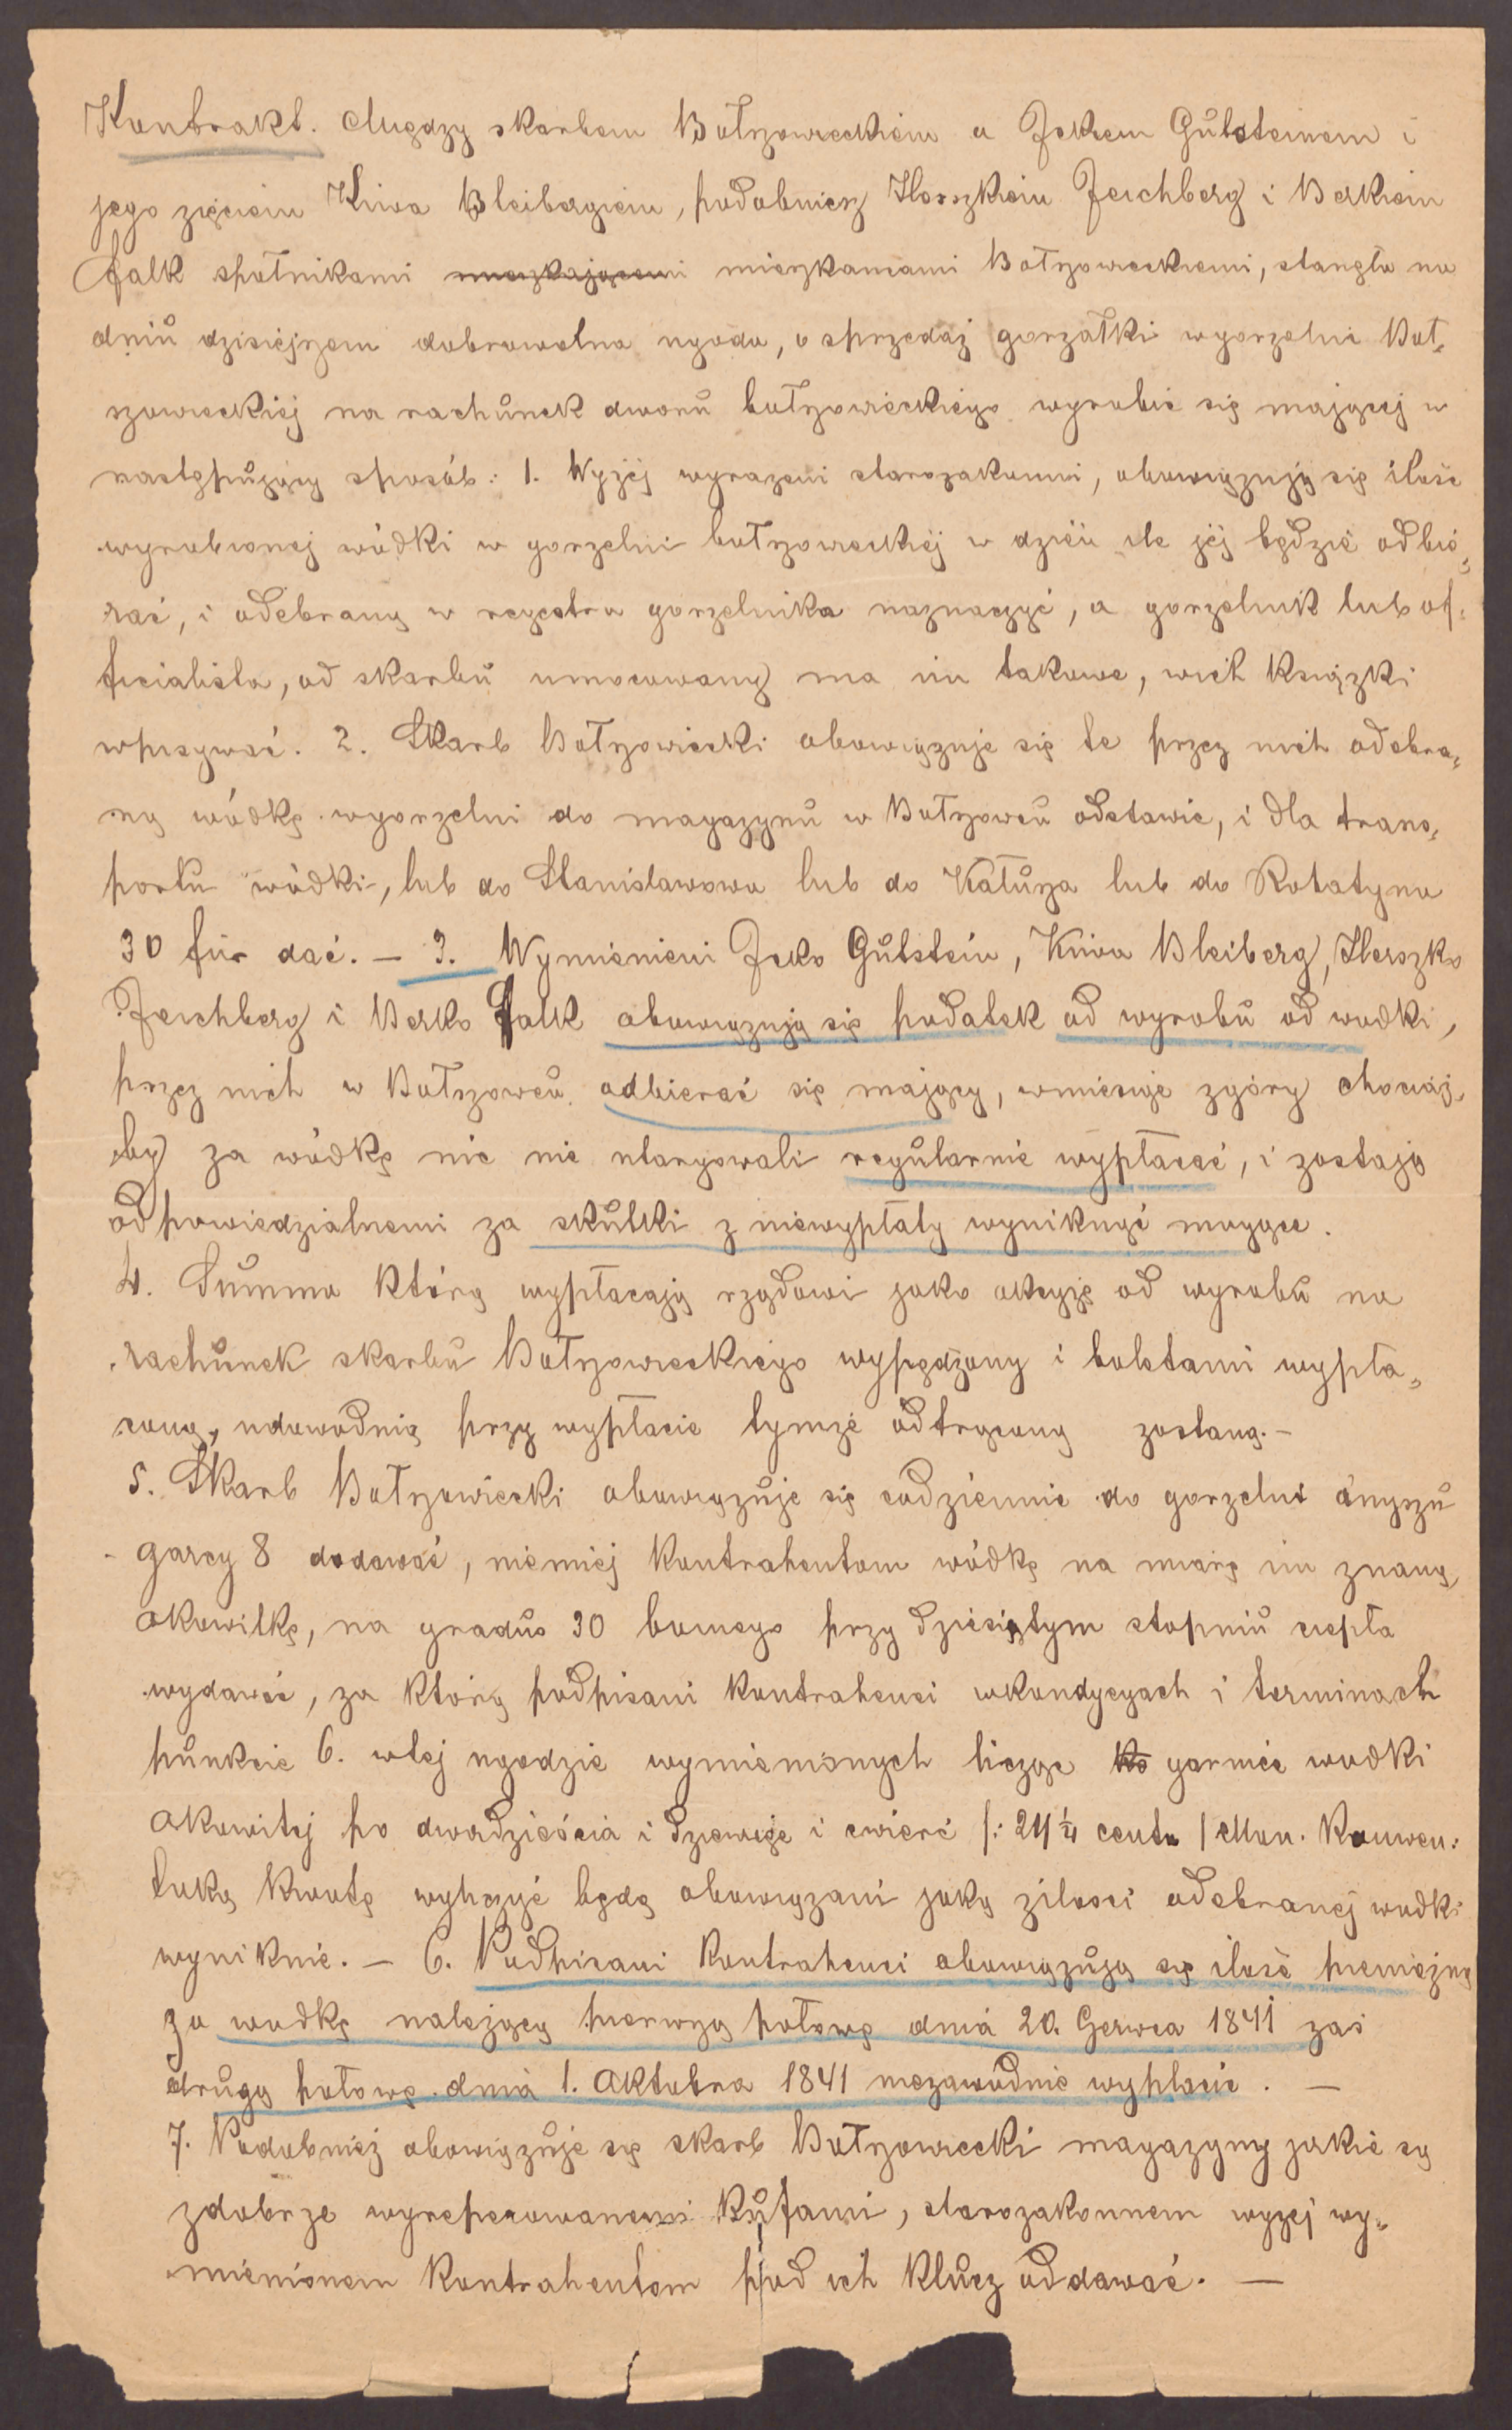 Kontrakt. Miyedzy skarbem Bołszowieckiem a Jekiem Gůtsteinem i
jego zięciem Kiwa Bleibergiem, podobniesz Herszkiem Zeichberg i Berkiem
Falk spółnikami mieszkającemi mieszkancami Bołszowieckiemi, stanęła na
dniů dzisiéjszem dobrowolna ugoda, o sprzedaż gorzałki wgorzelni Boł-
szowieckiéj na rachůnek dworů bołszowieckiego wyrobić się mającej w
następůjący sposób: 1. Wyżéj wyrazeni starozakonni, obowiązują się ilość
wyrobionej wódki w gorzelni bołszowieckiéj w dzién ile jéj będzié odbié-
rać, i odebraną w regestra gorzelnika naznaczyć, a gorzelnik lub of-
ficialista, od skarbů umocowany ma im takowe, wich książki
wpisywać. 2. Skarb Bołszowiecki obowiązuje się te przez nich odebra-
ną wódkę wgorzelni do magazynů w Bołszowců odstawić, i dla trans-
portu wódki, lub do Stanisławowa lub do Kałůsza lub do Rohatyna
30 fůr dać. — 3. Wymienieni Jeko Gůtstein, Kiwa Bleiberg, Herszko
Zeichberg i Berko Falk obowiązują się podatek od wyrobů od wodki,
przez nich w Bołszowců odbierać się mający, wmiesiąc zgóry chociaż-
by za wódkę nic nie utargowali regůlarnié wypłacać, i zostają
odpowiedzialnemi za skůtki z niewypłaty wyniknąć mogące.
4. Summa którą wypłacają rządowi jako akcyzę od wyrobů na
rachůnek skarbů Bołszowieckiego wypędzony i boletami wypła-
coną, udowodnią przy wypłacie tymże odtrąconą zostaną. —
5. Skarb Bołszowiecki obowiązůje się codziennie do gorzelni anyszů
garcy 8 dodawać, niemiéj kontrahentom wódkę na miarę im znaną,
okowitkę, na gradus 30 bomego przy dziesiątym stopniů ciepła
wydawać, za którą podpisani kontrahenci wkondycyach i terminach
půnkcie 6. wtej ugodzie wymienionych licząc ko garniec wodki
okowitej po dwadzieścia i dziewięć i ćwierć /: 29 1/4 centa / Mon. Konwen:
taką kwotę wyliczyć będą obowiązani jaką zilosci odebranej wodki
wyniknie. — 6. Podpisani kontrahenci obowiązůją się ilość pieniężną
za wodkę należącą pierwszą połowę dnia 20. Czerwca 1841 zaś
drůgą połowę dnia 1. Oktobra 1841 niezawodnie wypłacić. —
7. Podobniéż obowiązůje się skarb Bołszowiecki magazyny jakie są
zdobrze wyreperowanemi kůfami, starozakonnem wyżej wy-
mienionem kontrahentom pod ich klůcz oddawać. —